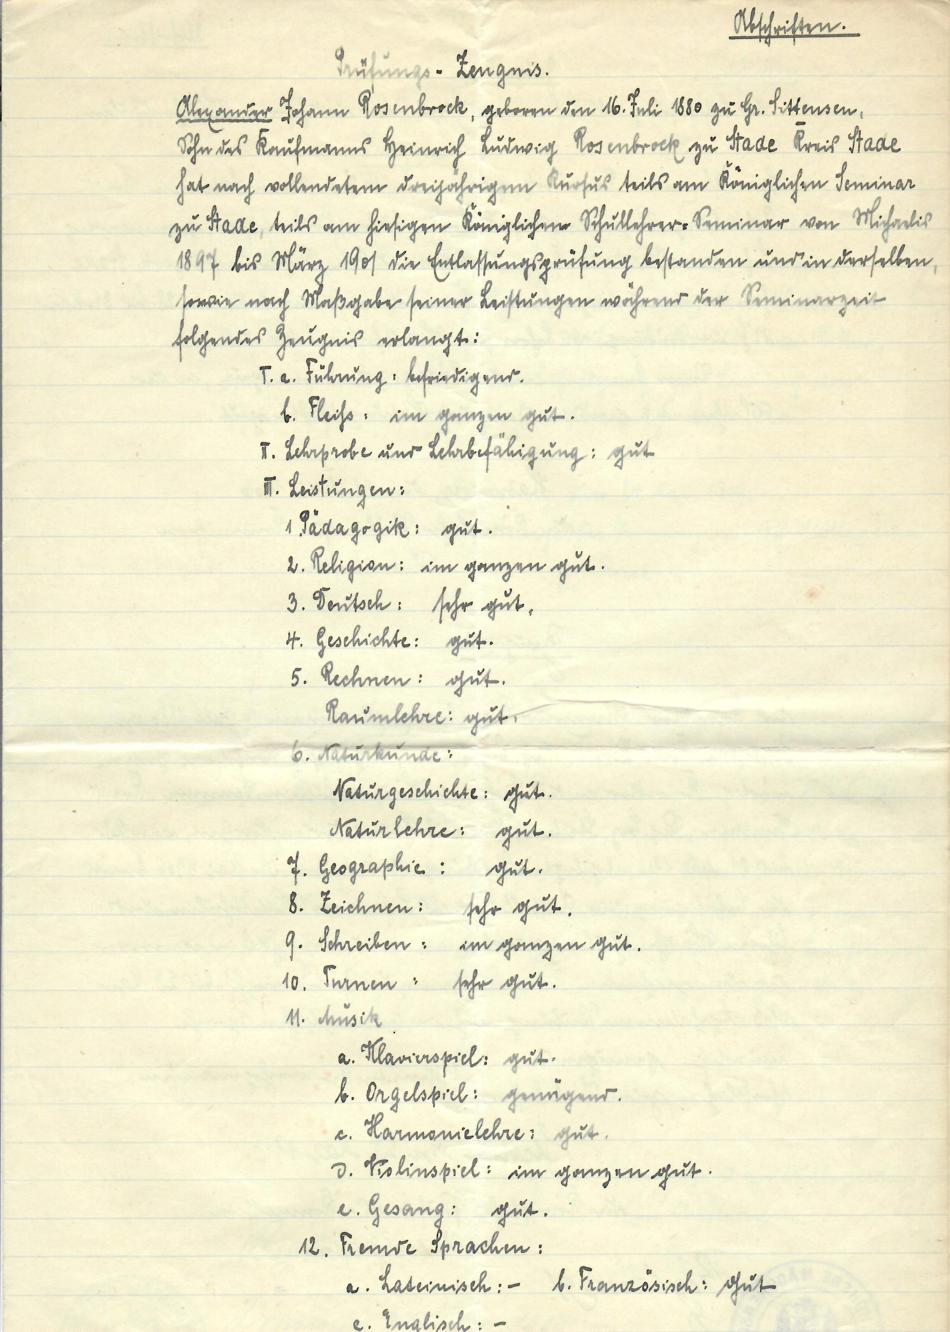 Abschriften.
Prüfungs-Zeugnis.
Alexander Johann Rosenbrock, geboren den 16. Juli 1880 zu Gr. Sittensen,
Sohn des Kaufmanns Heinrich Ludwig Rosenbrock zu Stade Kreis Stade
hat nach vollendetem dreijährigem Kursus teils am Königlichen Seminar
zu Stade, teils am hiesigen Königlichen Schullehrer-Seminar von Michaelis
1897 bis März 1901 die Entlassungsprüfung bestanden und in derselben,
sowie nach Maßgabe seiner Leistungen während der Seminarzeit
folgendes Zeugnis erlangt:
I. a. Führung: befriedigend.
b. Fleiß: im ganzen gut.
II. Lehrprobe und Lehrbefähigung: gut
III. Leistungen:
1. Pädagogik: gut.
2. Religion: im ganzen gut.
3. Deutsch: sehr gut.
4. Geschichte: gut.
5. Rechnen: gut.
Raumlehre: gut.
6. Naturkunde:
Naturgeschichte: gut.
Naturlehre: gut.
7. Geographie: gut.
8. Zeichnen: sehr gut.
9. Schreiben: im ganzen gut.
10. Turnen: sehr gut.
11. Musik
a. Klavierspiel: gut.
b. Orgelspiel: genügend.
c. Harmonielehre: gut.
d. Violinspiel: im ganzen gut.
e. Gesang: gut.
12. Fremde Sprachen:
a. Lateinisch: – b. Französisch: gut
c. Englisch: –